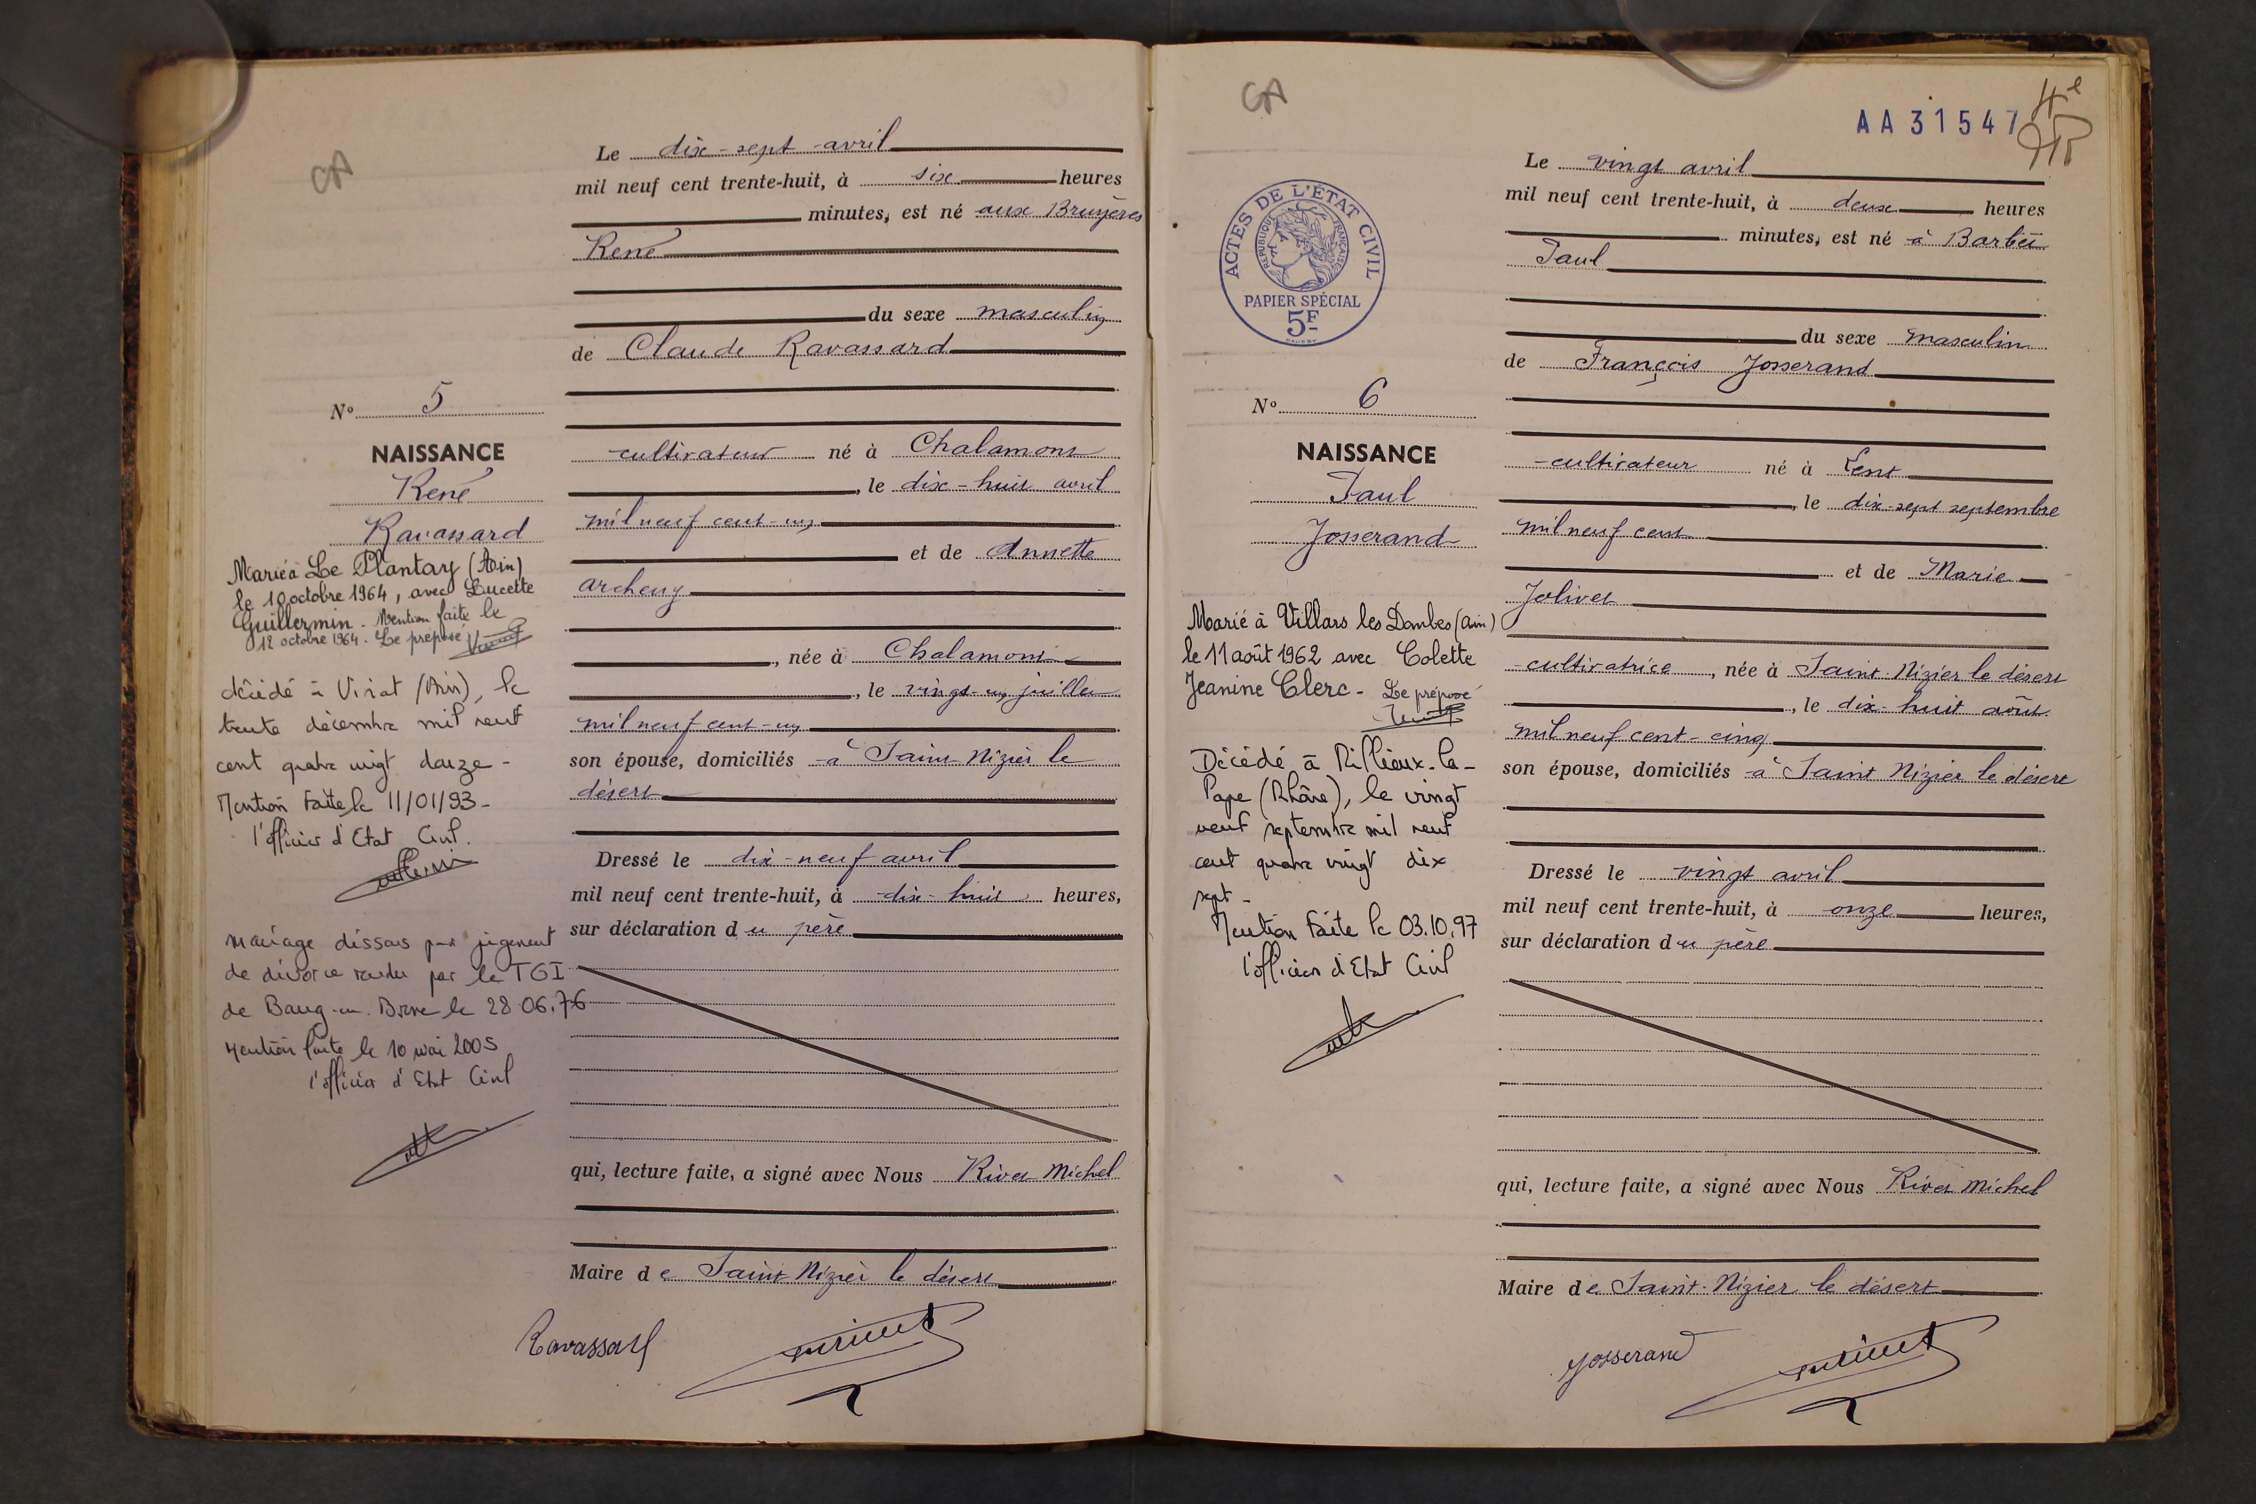 CA
Le dix-sept avril
mil neuf cent trente-huit, à six heures
minutes, est né aux Bruyères
René
du sexe masculin
de Claude Ravassard
N° 5
NAISSANCE
René
Ravassard
cultivateur né à Chalamont
, le dix-huit avril
mil neuf cent-un
et de Annette
Archeny
, née à Chalamont
, le vingt-un juillet
mil neuf cent-un
son épouse, domiciliés à Saint Nizier le
désert
Dressé le dix-neuf avril
mil neuf cent trente-huit, à dix-huit heures,
sur déclaration du père
qui, lecture faite, a signé avec Nous Rivet Michel
Maire de Saint Nizier le désert
Ravassard
Marié à Le Plantay (Ain)
le 10 octobre 1964, avec Lucette
Guillermin. Mention faite le
12 octobre 1964. Le préposé
décédé à Viriat (Ain), le
trente décembre mil neuf
cent quatre vingt douze -
Mention faite le 11/01/93 -
l'officier d'Etat Civil.
Mariage dissous par jugement
de divorce rendu par le TGI
de Bourg-en-Bresse le 28.06.76
Mention faite le 10 mai 2005
l'officier d'Etat Civil
CA
AA 31547
ACTES DE L'ÉTAT CIVIL
RÉPUBLIQUE FRANÇAISE
PAPIER SPÉCIAL
5F
Le vingt avril
mil neuf cent trente-huit, à deux heures
minutes, est né à Barbeu
Paul
du sexe masculin
de François Josserand
N° 6
NAISSANCE
Paul
Josserand
cultivateur né à Lent
, le dix-sept septembre
mil neuf cent
et de Marie
Jolivet
cultivatrice, née à Saint-Nizier le désert
, le dix-huit août
mil neuf cent-cinq
son épouse, domiciliés à Saint Nizier le désert
Dressé le vingt avril
mil neuf cent trente-huit, à onze heures,
sur déclaration du père
qui, lecture faite, a signé avec Nous Rivet Michel
Maire de Saint-Nizier le désert
Josserand
Marié à Villars les Dombes (Ain)
le 11 août 1962 avec Colette
Jeanine Clerc - Le préposé
Décédé à Rillieux-la-
Pape (Rhône), le vingt
neuf septembre mil neuf
cent quatre vingt dix
sept -
Mention faite le 03.10.97
l'officier d'Etat Civil